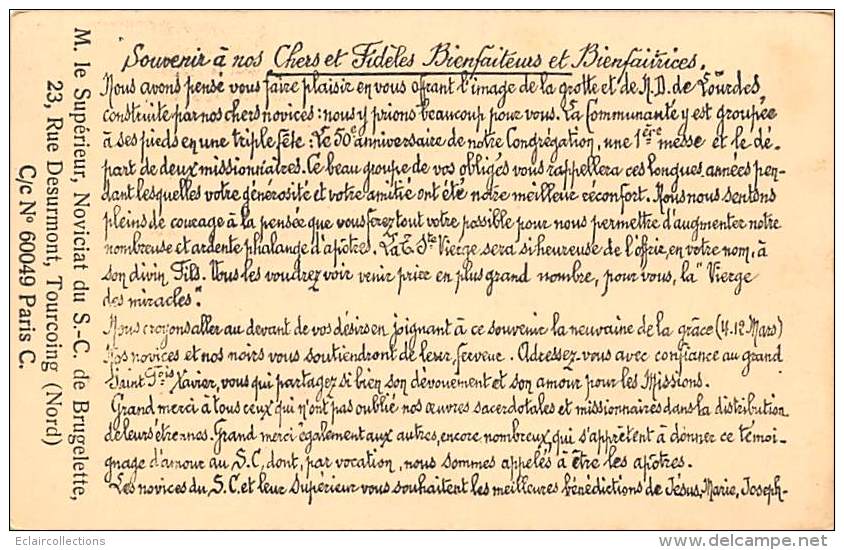 Souvenir à nos Chers et Fidèles Bienfaiteurs et Bienfaitrices.
Nous avons pensé vous faire plaisir en vous offrant l'image de la grotte et de N.D. de Lourdes
construite par nos chers novices : nous y prions beaucoup pour vous. La Communauté y est groupée
à ses pieds en une triple fête : Le 50e anniversaire de notre Congrégation, une 1ère messe et le dé-
part de deux missionnaires. Ce beau groupe de vos obligés vous rappellera ces longues années pen-
dant lesquelles votre générosité et votre amitié ont été notre meilleur réconfort. Nous nous sentons
pleins de courage à la pensée que vous ferez tout votre possible pour nous permettre d'augmenter notre
nombreuse et ardente phalange d'apôtres. La T. Ste Vierge sera si heureuse de l'offrir, en votre nom, à
son divin Fils. Vous les voudrez voir venir prier en plus grand nombre, pour vous, la "Vierge
des miracles".
Nous croyons aller au devant de vos désirs en joignant à ce souvenir la neuvaine de la grâce (4.12 Mars)
Nos novices et nos noirs vous soutiendront de leur ferveur. Adressez-vous avec confiance au grand
Saint Fois Xavier, vous qui partagez si bien son dévouement et son amour pour les Missions.
Grand merci à tous ceux qui n'ont pas oublié nos œuvres sacerdotales et missionnaires dans la distribution
de leurs étrennes. Grand merci également aux autres, encore nombreux, qui s'apprêtent à donner ce témoi-
gnage d'amour au S.C, dont, par vocation, nous sommes appelés à être les apôtres.
Les novices du S.C. et leur Supérieur vous souhaitent les meilleures bénédictions de Jésus, Marie, Joseph-
M. le Supérieur, Noviciat du S.-C. de Brugelette,
23, Rue Desurmont, Tourcoing (Nord)
C/c N° 60049 Paris C.
Eclaircollections
http://www.delcampe.net